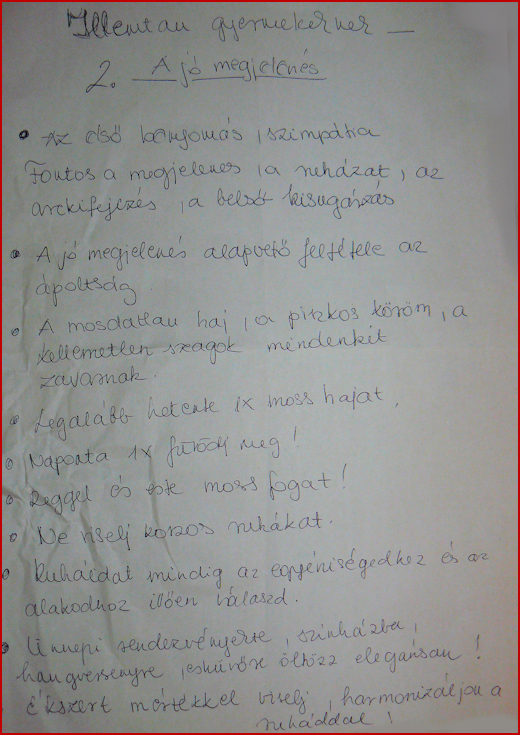 Illemtan gyermekeknek —
2. A jó megjelenés
• Az első benyomás, szimpátia
Fontos a megjelenes, a ruházat, az
arckifejezés, a belső kisugárzás
• A jó megjelenés alapvető feltétele az
ápoltság.
• A mosdatlan haj, a piszkos köröm, a
kellemetlen szagok mindenkit
zavarnak.
• Legalább hetente 1x moss hajat.
• Naponta 1x fürödj meg!
• Reggel és este moss fogat!
• Ne viselj koszos ruhákat.
• Ruháidat mindig az egyéniségedhez és az
alakodhoz illően válaszd.
• Ünnepi rendezvényekre, színházba,
hangversenyre, esküvőre öltözz elegánsan!
• Ékszert mértékkel viselj, harmonizáljon a
ruháddal!